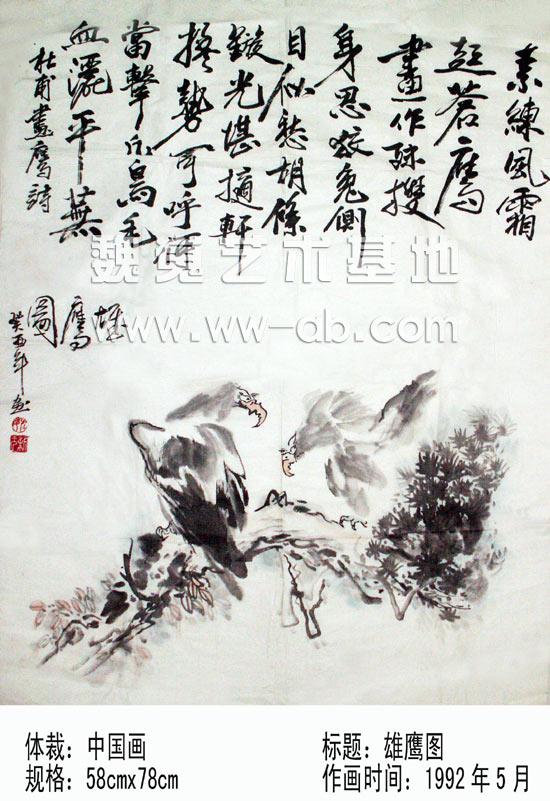 素練風霜
起蒼鷹
畫作殊㩳
身思狡兔側
目似愁胡絛
鏇光堪擿軒
楹勢可呼何
當擊凡鳥毛
血灑平蕪
杜甫畫鷹詩
雄
鷹
圖
癸酉年畫
魏冕艺术基地
www.ww-ab.com
体裁：中国画
标题：雄鹰图
规格：58cmx78cm
作画时间：1992年5月